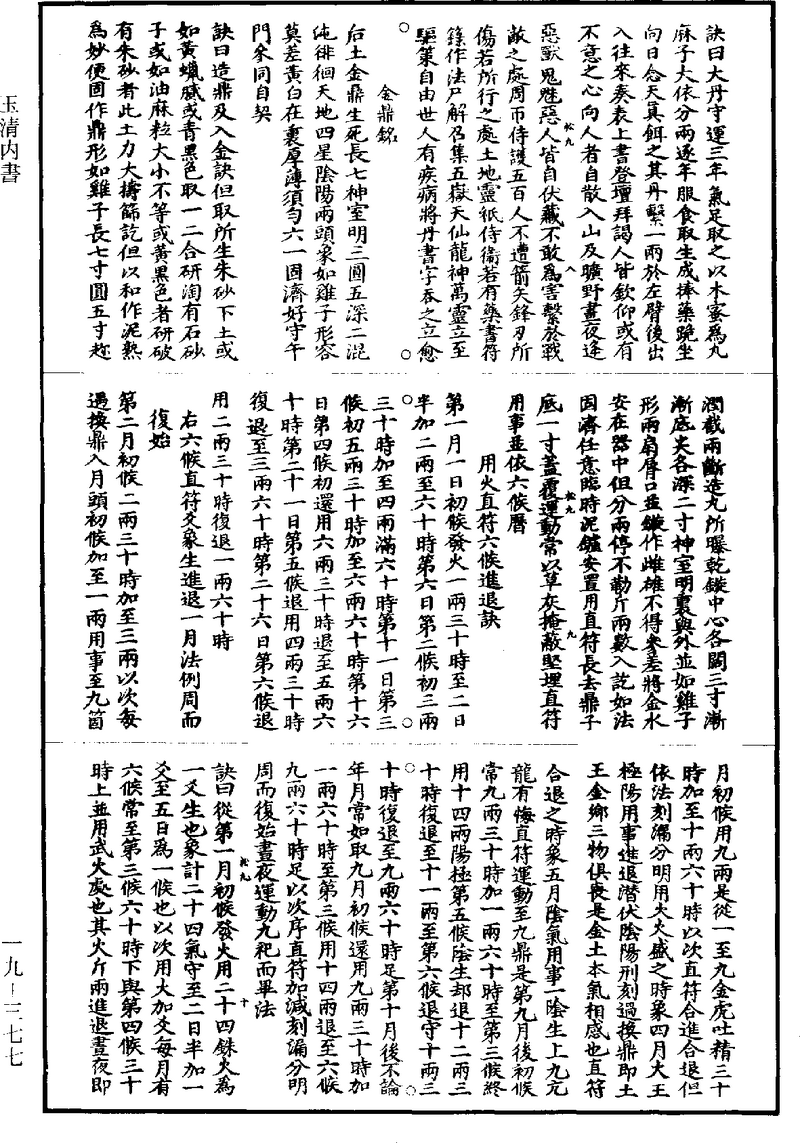 訣曰大丹守運三年氣足取之以木蜜為丸
麻子大依分兩逐年服食取生成捧藥跪坐
向日念天真餌之其丹繫一兩於左臂後出
入往來奏表上書登壇拜謁人皆欽仰或有
不意之心向人者自散入山及曠野晝夜逢
惡獸鬼魅惡人皆自伏藏不敢為害繫於戰
敵之處周帀侍護五百人不遭箭矢鋒刃所
傷若所行之處土地靈祇侍衞若有藥書符
籙作法尸解召集五嶽天仙龍神萬靈立至
驅策自由世人有疾病將丹書字吞之立愈
金鼎銘
后土金鼎生死長七神室明三圓五深二混
沌徘徊天地四星陰陽兩頭象如雞子形容
莫差黃白在裏厚薄須勻六一固濟好守午
門參同自契
訣曰造鼎及入金訣但取所生朱砂下土或
如黃蠟膩或青黑色取一二合研淘有石砂
子或如油麻粒大小不等或黃黑色者研破
有朱砂者此土力大擣篩訖但以和作泥熟
為妙便固作鼎形如雞子長七寸圓五寸趂
潤截兩斷造九所曝乾鏇中心各闊三寸漸
漸底尖各深二寸神室明裏與外並如雞子
形兩扇脣口並鏇作雌雄不得參差將金水
安在器中但分兩停不勒斤兩數入訖如法
固濟任意臨時泥鑪安置用直符長去鼎子
底一寸蓋覆運動常以草灰掩蔽堅埋直符
用事並依六候曆
用火直符六候進退訣
第一月一日初候發火一兩三十時至二日
半加二兩至六十時第六日第二候初三兩
三十時加至四兩滿六十時第十一日第三
候初五兩三十時加至六兩六十時第十六
日第四候初還用六兩三十時退至五兩六
十時第二十一日第五候退用四兩三十時
復退至三兩六十時第二十六日第六候退
用二兩三十時復退一兩六十時
右六候直符爻象生進退一月法例周而
復始
第二月初候二兩三十時加至三兩以次每
遇換鼎入月頭初候加至一兩用事至九箇
月初候用九兩是從一至九金虎吐精三十
時加至十兩六十時以次直符合進合退但
依法刻漏分明用火火盛之時象四月大王
極陽用事進退潜伏陰陽刑刻過換鼎即土
王金鄉三物俱喪是金土本氣相感也直符
合退之時象五月陰氣用事一陰生上九亢
龍有悔直符運動至九鼎是第九月後初候
常九兩三十時加一兩六十時至第三候終
用十四兩陽極第五候陰生却退十二兩三
十時復退至十一兩至第六候退守十兩三
十時復退至九兩六十時足第十月後不論
年月常如取九月初候還用九兩三十時加
一兩六十時至第三候用十四兩退至六候
九兩六十時足以次序直符加減刻漏分明
周而復始晝夜運動九祀而畢法
訣曰從第一月初候發火用二十四銖火為
一爻生也象計二十四氣守至二日半加一
爻至五日為一候也以次用大加爻每月有
六候常至第三候六十時下與第四候三十
時上並用武火處也其火斤兩進退晝夜即
玉清内書
一九-三七七